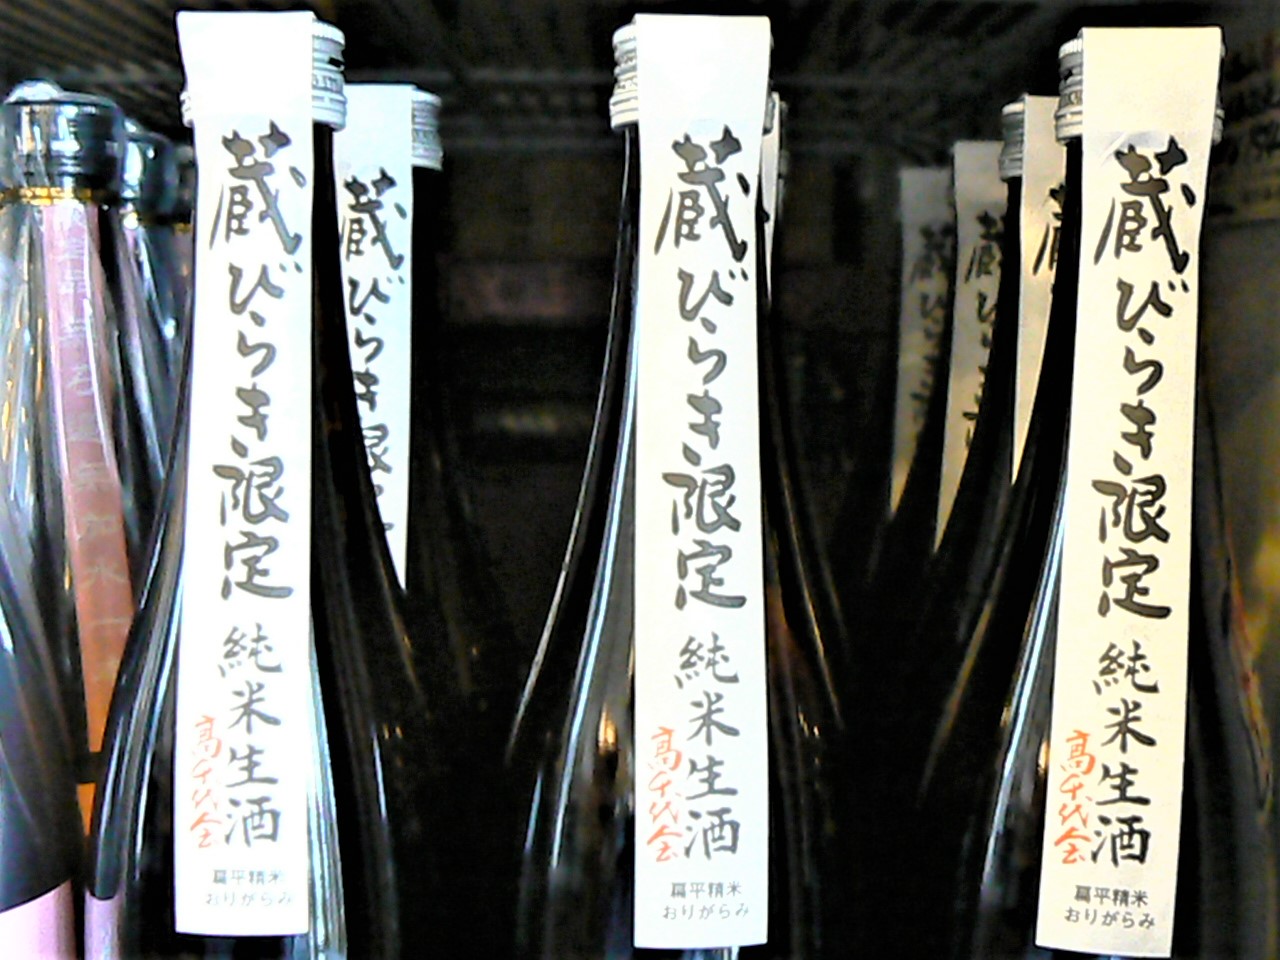 蔵びらき限定
純米生酒
高千代会
扁平精米
おりがらみ
蔵びらき限定
蔵びらき限定
純米生酒
高千代会
扁平精米
おりがらみ
蔵び
蔵び
蔵
蔵びらき限定
純米生酒
高千代会
扁平精米
おりがらみ